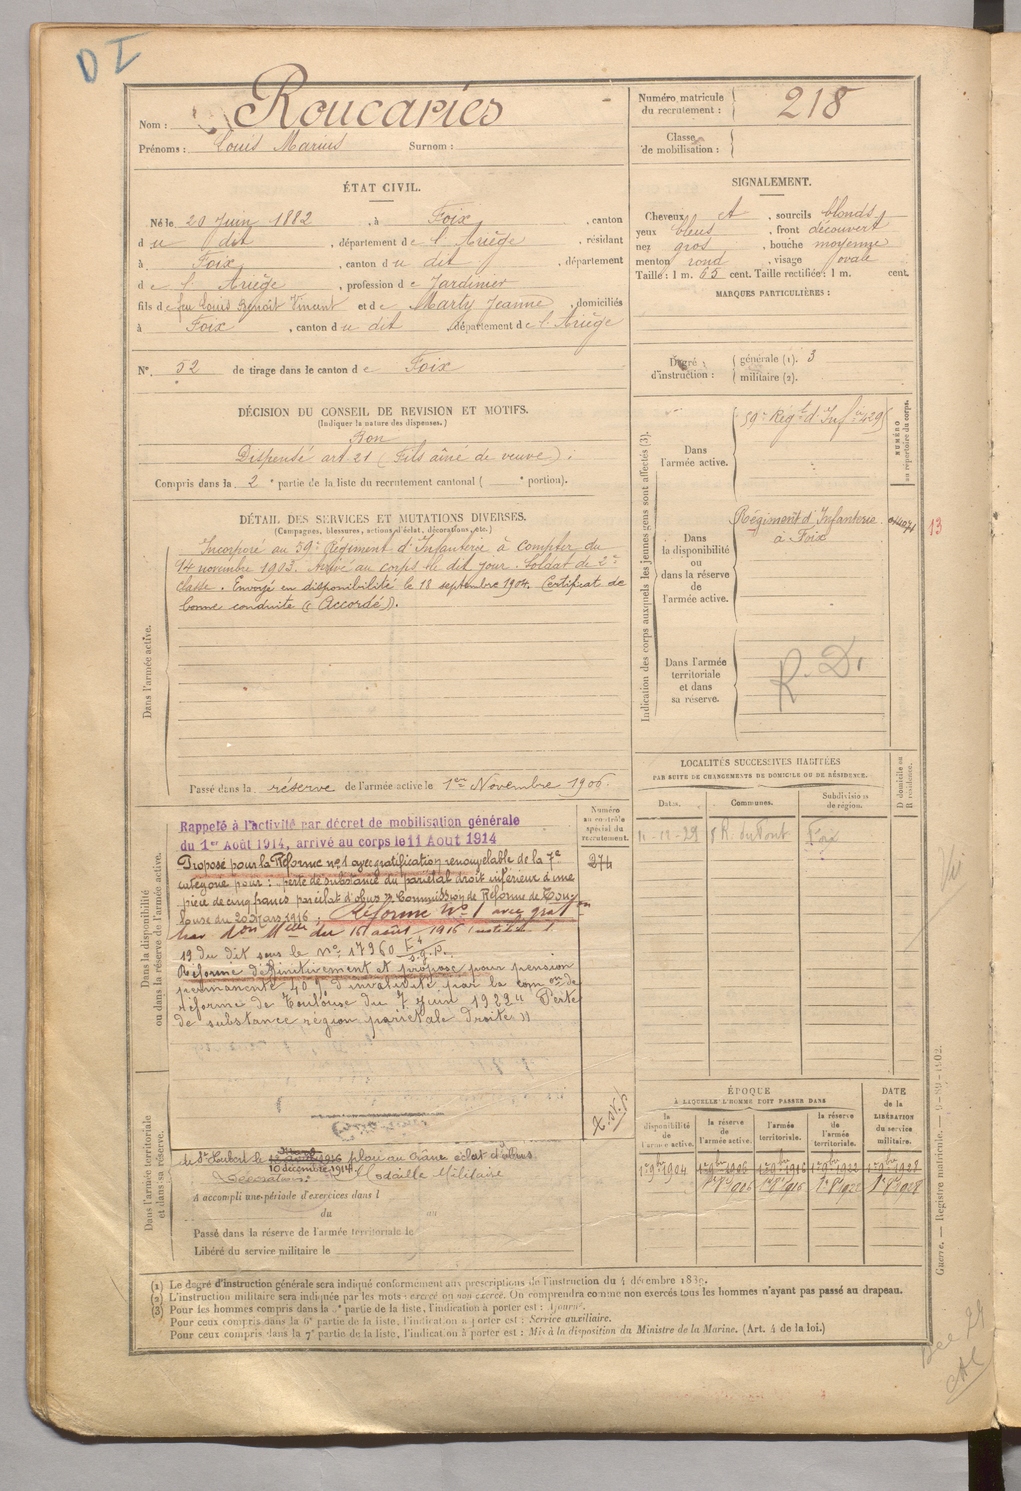 D I
Nom : Roucariès
Prénoms : Louis Marius Surnom :
Numéro matricule du recrutement : 218
Classe de mobilisation :
ÉTAT CIVIL.
Né le 20 Juin 1882, à Foix, canton
du dit, département de l'Ariège, résidant
à Foix, canton du dit, département
de l'Ariège, profession de Jardinier
fils de feu Louis Benoit Vincent et de Marty Jeanne, domiciliés
à Foix, canton du dit, département de l'Ariège
N° 52 de tirage dans le canton de Foix
SIGNALEMENT.
Cheveux A, sourcils blonds
yeux bleus, front découvert
nez gros, bouche moyenne
menton rond, visage ovale
Taille : 1 m. 65 cent. Taille rectifiée : 1 m. cent.
MARQUES PARTICULIÈRES :
Degré d'instruction : générale (1). 3
militaire (2).
DÉCISION DU CONSEIL DE REVISION ET MOTIFS.
(Indiquer la nature des dispenses.)
Bon
Dispensé art 21 (Fils aîné de veuve).
Compris dans la 2e partie de la liste du recrutement cantonal ( e portion).
DÉTAIL DES SERVICES ET MUTATIONS DIVERSES.
(Campagnes, blessures, actions d'éclat, décorations, etc.)
Dans l'armée active.
Incorporé au 59e Régiment d'Infanterie à compter du
14 novembre 1903. Arrivé au corps le dit jour. Soldat de 2e
classe. Envoyé en disponibilité le 18 septembre 1904. Certificat de
bonne conduite "Accordé".
Passé dans la réserve de l'armée active le 1er Novembre 1906.
Indication des corps auxquels les jeunes gens sont affectés (3).
NUMÉRO au répertoire du corps.
Dans l'armée active.
59e Régt d'Infie
Dans la disponibilité ou dans la réserve de l'armée active.
Régiment d'Infanterie
à Foix
13
Dans l'armée territoriale et dans sa réserve.
R. D.
Dans la disponibilité ou dans la réserve de l'armée active.
Numéro au contrôle spécial du recrutement.
274
Rappelé à l'activité par décret de mobilisation générale
du 1er Août 1914, arrivé au corps le 11 Août 1914
Proposé pour la Réforme n° 1 avec gratification renouvelable de la 7e
catégorie pour : perte de substance du pariétal droit inférieur d'une
pièce de cinq francs par éclat d'obus. Commission de Réforme de Toulouse
du 20 Mars 1916. Réformé N° 1 avec graton
par don Mlle du 16 août 1916
19 du dit sous le N° 17960
Réformé définitivement et proposé pour pension
permanente 40 % d'invalidité par la comon de
réforme de Toulouse du 7 Juin 1922 "Perte
de substance région pariétale droite"
LOCALITÉS SUCCESSIVES HABITÉES
PAR SUITE DE CHANGEMENTS DE DOMICILE OU DE RÉSIDENCE.
Dates. Communes. Subdivision de région. D domicile ou R résidence.
11-12-29 8 R. du Pont Foix
ÉPOQUE
À LAQUELLE L'HOMME DOIT PASSER DANS
DATE de la LIBÉRATION du service militaire.
la disponibilité de l'armée active. la réserve de l'armée active. l'armée territoriale. la réserve de l'armée territoriale.
1 9bre 1904 1 9bre 1906 1 9bre 1916 1 9bre 1922 1 9bre 1928
Dans l'armée territoriale et dans sa réserve.
de St Hubert le
10 décembre 1914 plaie au crâne éclat d'obus
Décorations : Médaille Militaire
A accompli une période d'exercices dans l
du au
Passé dans la réserve de l'armée territoriale le
Libéré du service militaire le
(1) Le degré d'instruction générale sera indiqué conformément aux prescriptions de l'instruction du 4 décembre 1889.
(2) L'instruction militaire sera indiquée par les mots : exercé ou non exercé. On comprendra comme non exercés tous les hommes n'ayant pas passé au drapeau.
(3) Pour les hommes compris dans la 5e partie de la liste, l'indication à porter est : Ajourné.
Pour ceux compris dans la 6e partie de la liste, l'indication à porter est : Service auxiliaire.
Pour ceux compris dans la 7e partie de la liste, l'indication à porter est : Mis à la disposition du Ministre de la Marine. (Art. 4 de la loi.)
Guerre. — Registre matricule.